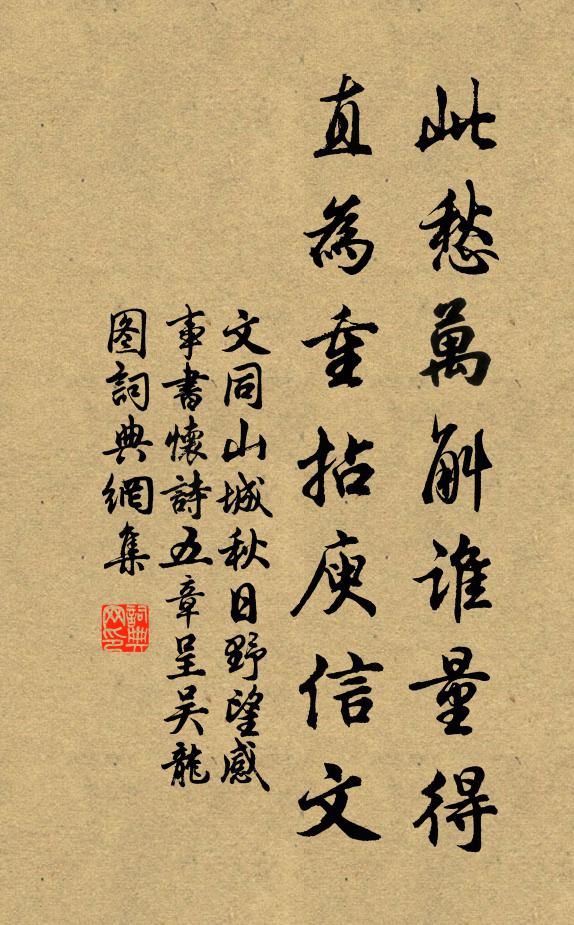 此愁萬斛誰量得
直為重拈庾信文
文同山城秋日野望感
事書懷詩五章呈吴龍
图詞典網集
詞典
网印